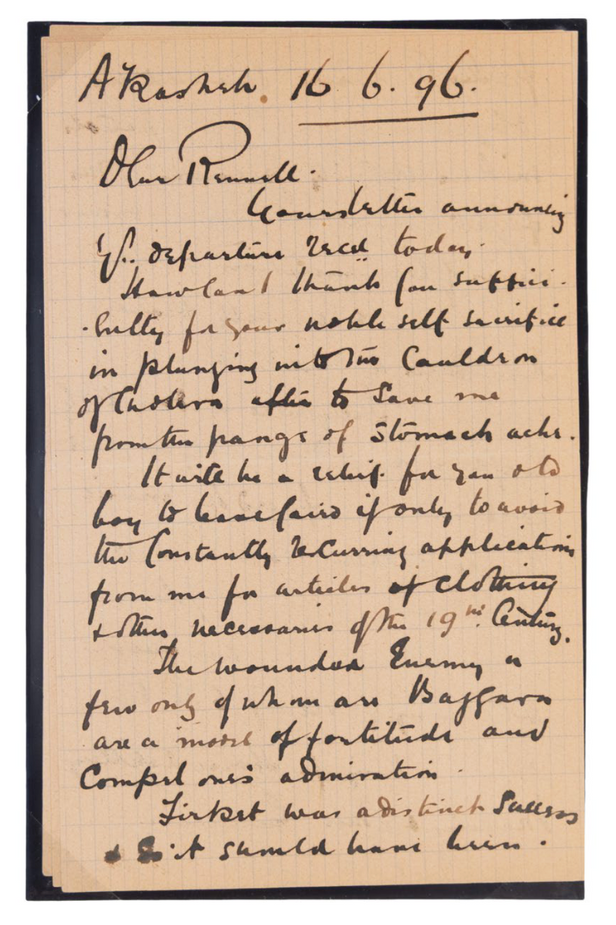 Akasheh. 16 6. 96.
Dear Rennell.
Yours letter announcing
yr. departure recd today.
How can I thank you suffici-
-ently for your noble self sacrifice
in plunging into the Cauldron
of Cholera after to save me
from the pangs of stomach ache.
It will be a relief for you old
boy to leave Cairo if only to avoid
the Constantly recurring applications
from me for articles of clothing
& other necessaries of the 19th Century.
The wounded Enemy a
few only of whom are Baggara
are a model of fortitude and
Compel one's admiration.
Firket was a distinct success
& so it should have been.